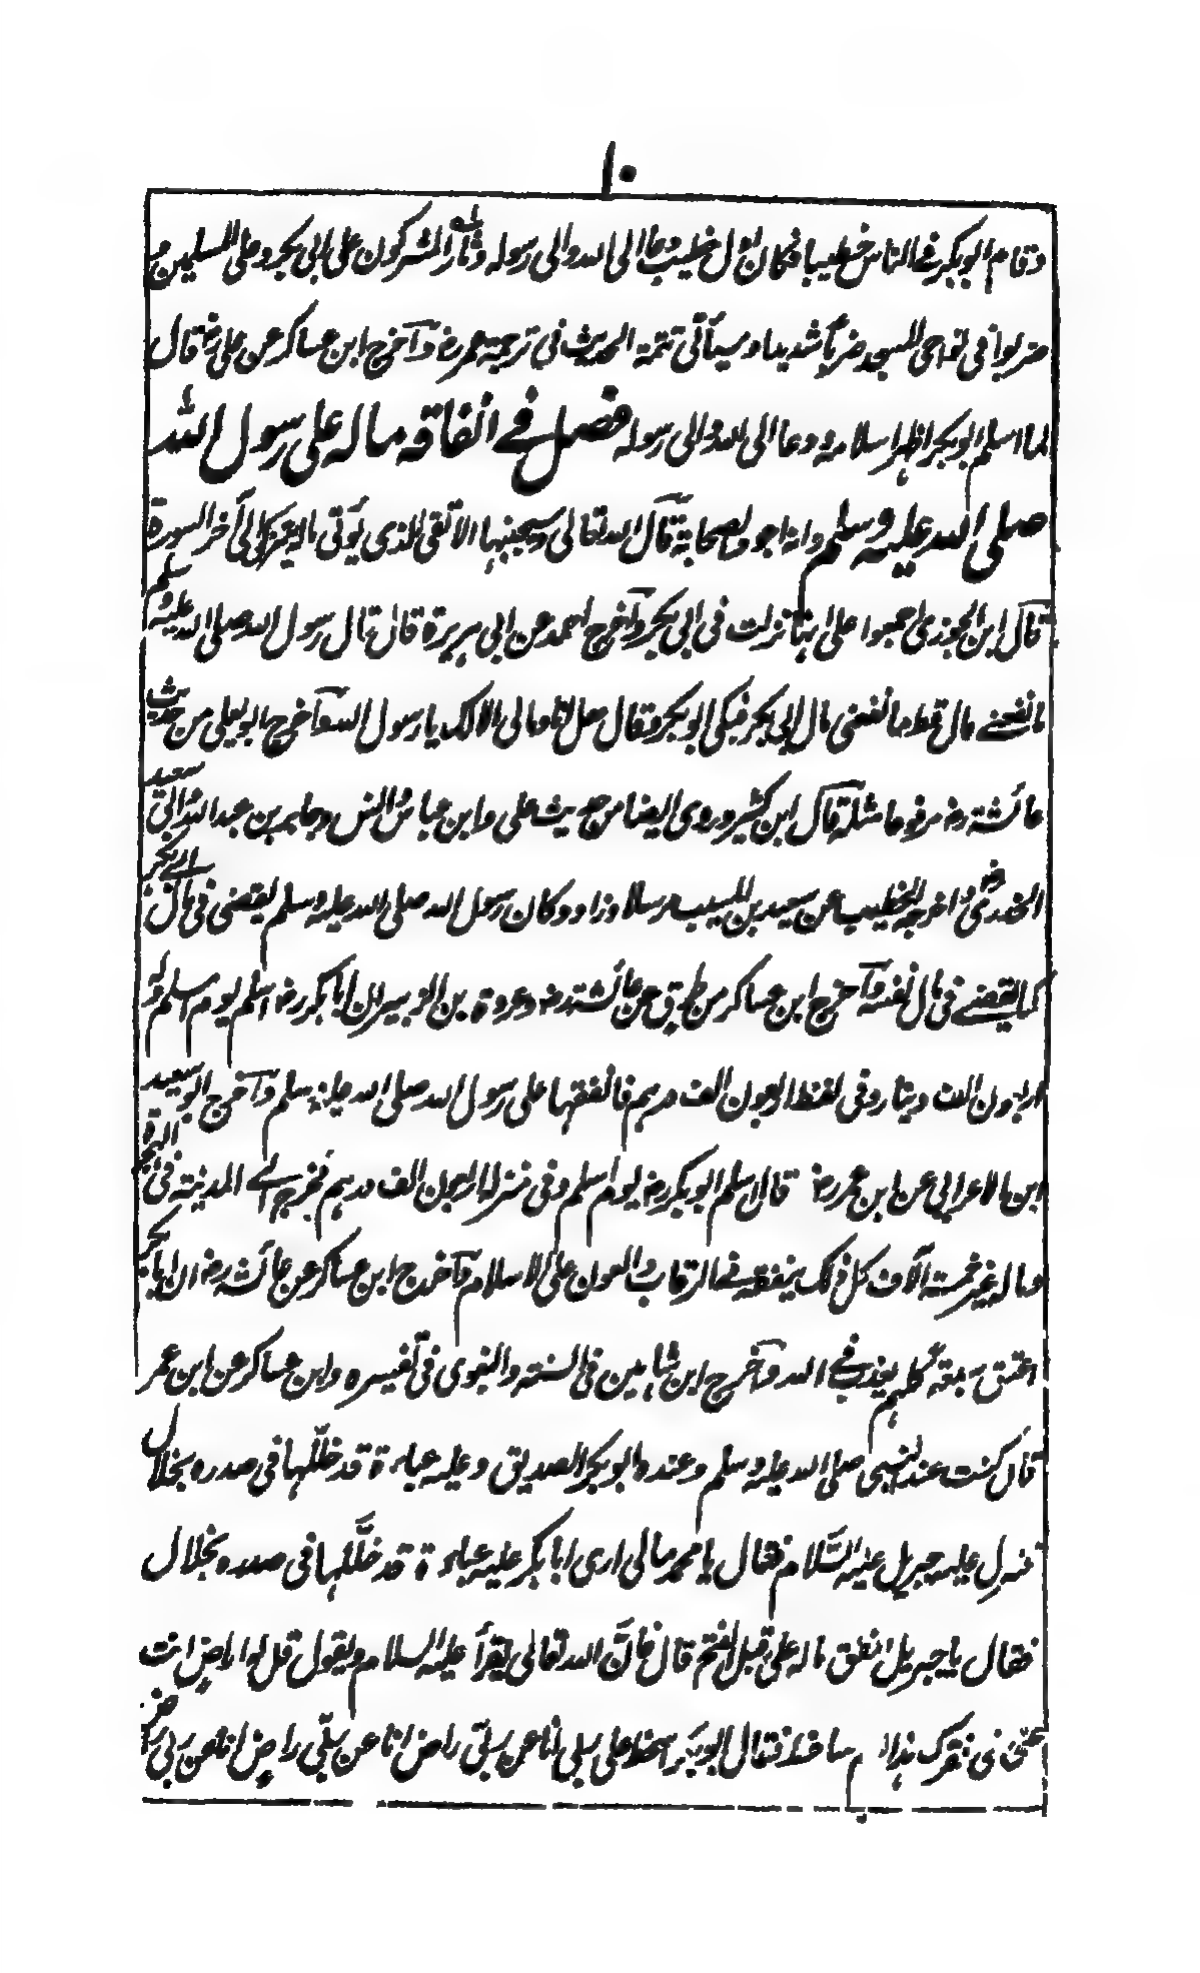 ١٠
وقام ابوبكر في الناس خطيبا فكان اول خطيب دعا الى الله والى رسوله وثار المشركون على ابى بكر وعلى المسلمين
ضربوا فى نواحى المسجد ضربا شديدا وسيأتى تتمة الحديث فى ترجمة عمر رض وآخرج ابن عساكر عن على رض قال
لما اسلم ابوبكر اظهر اسلامه ودعا الى الله والى رسوله فصل في انفاقه ماله على رسول الله
صلى الله عليه وسلم وانه اجود الصحابة قال الله تعالى وسيجنبها الاتقى الذى يؤتى ماله يتزكى الى آخر السورة
قال ابن الجوزى اجمعوا على انها نزلت فى ابى بكر وآخرج احمد عن ابى هريرة قال قال رسول الله صلى الله عليه وسلم
ما نفعنے مال قط ما نفعنى مال ابى بكر فبكى ابوبكر وقال هل انا ومالى الا لك يا رسول الله وآخرج ابو يعلى من حديث
عائشة رض مرفوعا مثله قال ابن كثير وروى ايضا من حديث على وابن عباس وانس وجابر بن عبد الله وابى سعيد
الخدرى رض واخرجه الخطيب عن سعيد بن المسيب مرسلا وزاد وكان رسول الله صلى الله عليه وسلم يقضى فى مال ابے بكر
كما يقضے فى مال نفسه وآخرج ابن عساكر من طرق عن عائشة رض وعروة بن الزبير ان ابا بكر رض اسلم يوم اسلم وله
اربعون الف دينار وفى لفظ اربعون الف درهم فانفقها على رسول الله صلى الله عليه وسلم وآخرج ابو سعيد
ابن الاعرابى عن ابن عمر رض قال اسلم ابوبكر رض يوم اسلم وفى منزله اربعون الف درهم فخرج الے المدينة فى الهجرة
وماله غير خمسة آلاف كل ذلك ينفقه في الرقاب والعون على الاسلام وآخرج ابن عساكر عن عائشة رض ان ابا بكر
اعتق سبعة كلهم يعذب فے الله وآخرج ابن شاهين فى السنة والبغوى فى تفسيره وابن عساكر عن ابن عمر
قال كنت عند النبى صلى الله عليه وسلم وعنده ابوبكر الصديق وعليه عباءة قد خللها فى صدره بخلال
فنزل عليه جبريل عليه السلام فقال يا محمد مالى ارى ابا بكر عليه عباءة قد خللها فى صدره بخلال
فقال يا جبريل انفق ماله على قبل الفتح قال فان الله تعالى يقرأ عليه السلام ويقول قل له ا راض انت
عنى فى فقرك هذا ام ساخط فقال ابوبكر اسخط على ربى انا عن ربى راض انا عن ربى راض انا عن ربى راض